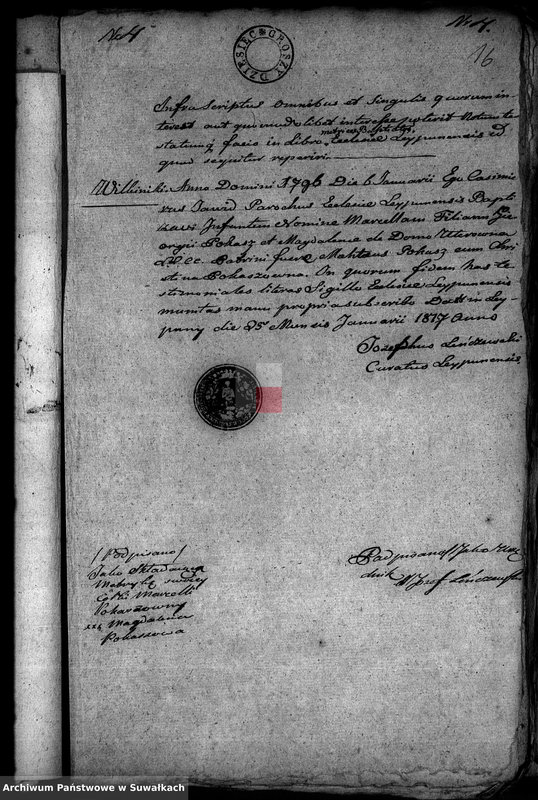 No 4
No 4.
16
DZIESIĘĆ GROSZY
Infra Scriptus omnibus et singulis quorum in
terest aut quomodolibet interesse poterit Notum te
statumq facio in Libro metrices Baptisatos Ecclesiae Leypunensis id
quod sequitur reperiri
Williniki Anno Domini 1796 Die 6 Januarii Ego Casimi
rus Parochus Ecclesiae Leypunensis Bapti
savi Infantem Nomine Marcellam Filiam Ge
orgii Pokasz et Magdalenae de Domo
LLCC. Patrini fuere Mathaeus Pokasz cum Chri
stina Pokaszowna. In quorum fidem has te
stimoniales literas Sigillo Ecclesiae Leypunensis
munitas manu propria subscribo Datt in Ley-
puny die 25 Mensis Januarii 1817 Anno
Josephus
Curatus Leypunensis
/Podpisano/
Jako Składaiąca
Metrykę swoiey
Córki Marcelli
Pokaszowny
xxx Magdalena
Pokaszowa
Podpisano/ Jako
dnik
X Józef
Archiwum Państwowe w Suwałkach